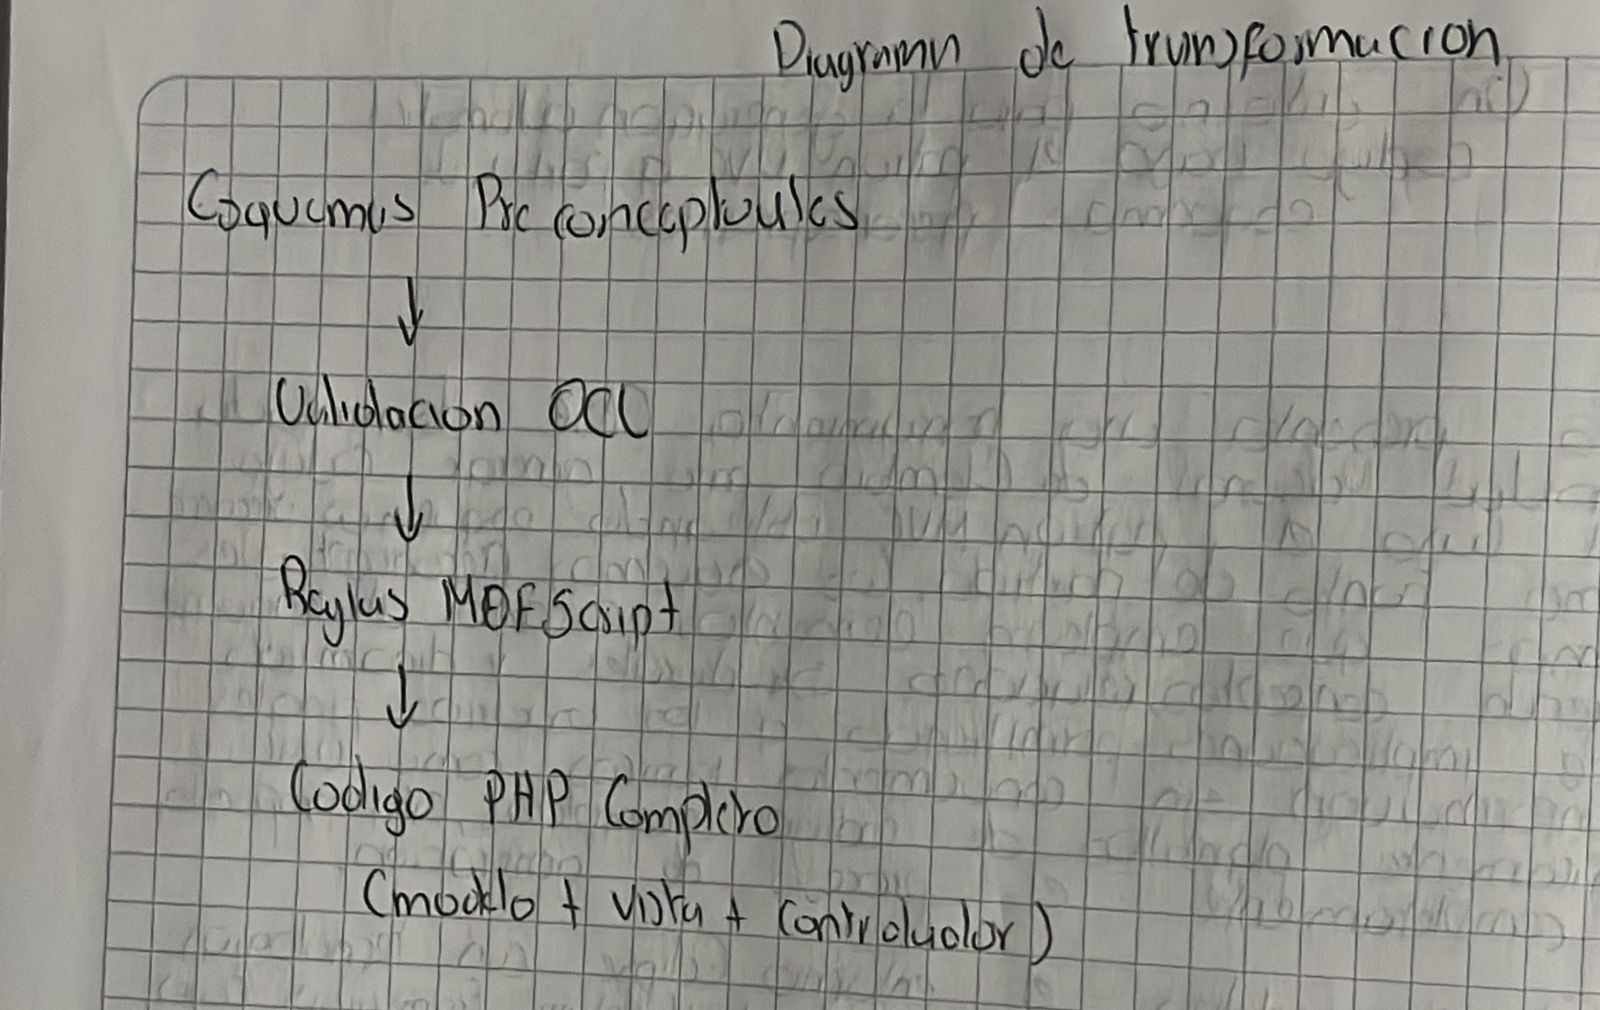 Diagrama de transformacion
Esquemas Preconceptuales
↓
Validacion OCL
↓
Reglas MOFScript
↓
Codigo PHP Completo
(modelo + vista + controlador)